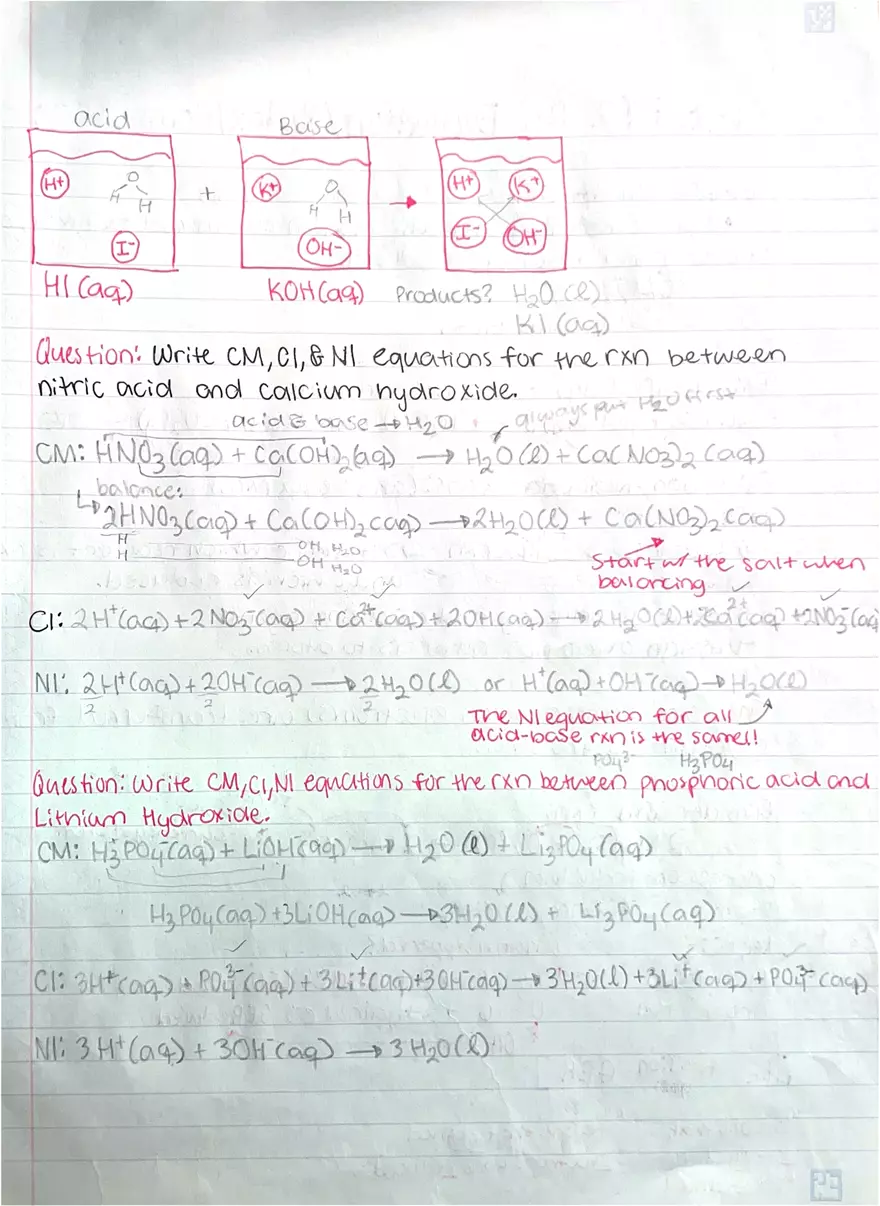 acid
Base
H+
O
H H
I-
+
K+
O
H H
OH-
→
H+ K+
I- OH-
HI (aq)
KOH(aq) Products? H₂O (l)
KI (aq)
Question: Write CM, CI, & NI equations for the rxn between
nitric acid and calcium hydroxide.
acid & base → H₂O always put H₂O first
CM: HNO₃(aq) + Ca(OH)₂(aq) → H₂O(l) + Ca(NO₃)₂ (aq)
balance:
2HNO₃(aq) + Ca(OH)₂(aq) → 2H₂O(l) + Ca(NO₃)₂(aq)
H OH H₂O
H OH H₂O
Start w/ the salt when
balancing
CI: 2H⁺(aq) + 2NO₃⁻(aq) + Ca²⁺(aq) + 2OH(aq) → 2H₂O(l) + Ca²⁺(aq) + 2NO₃⁻(aq
NI: 2H⁺(aq) + 2OH⁻(aq) → 2H₂O(l) or H⁺(aq) + OH⁻(aq) → H₂O(l)
2 2 2
The NI equation for all
acid-base rxn is the same!!
PO₄³⁻ H₃PO₄
Question: Write CM, CI, NI equations for the rxn between phosphoric acid and
Lithium Hydroxide.
CM: H₃⁺PO₄⁻(aq) + LiOH⁻(aq) → H₂O (l) + Li₃PO₄(aq)
H₃PO₄(aq) + 3LiOH(aq) → 3H₂O(l) + Li₃PO₄(aq)
CI: 3H⁺(aq) + PO₄³⁻(aq) + 3Li⁺(aq) + 3OH⁻(aq) → 3H₂O(l) + 3Li⁺(aq) + PO₄³⁻(aq)
NI: 3H⁺(aq) + 3OH⁻(aq) → 3H₂O(l)